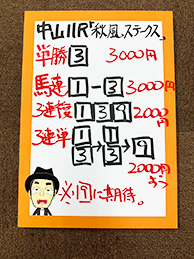 中山11R「秋風ステークス」
単勝 3 3000円
馬連 1-3 3000円
3連複 1 3 9 2000円
3連単 1 1
3→3→9
2000円ずつ
※9に期待。